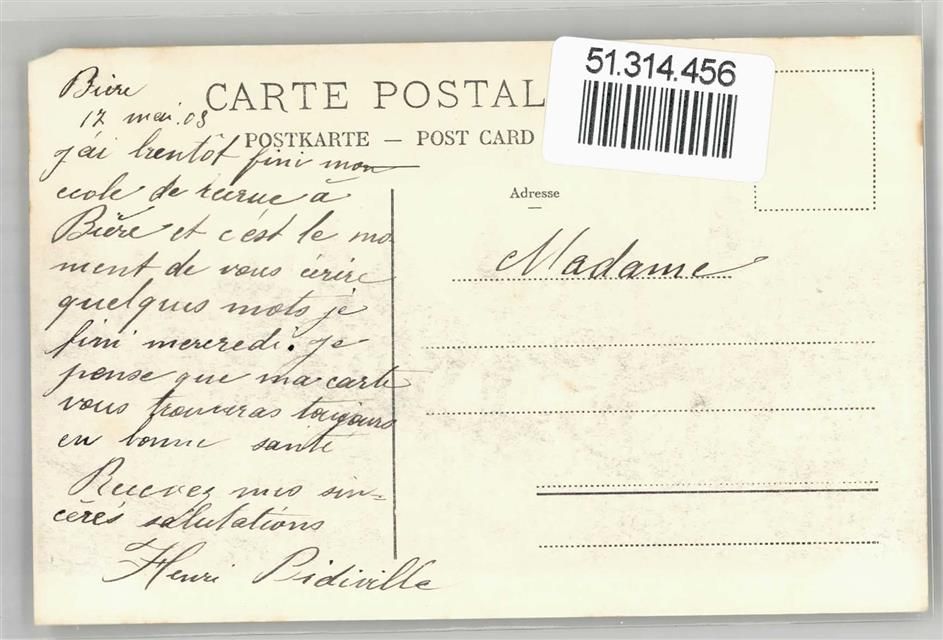 Bière
17 mai. 08
CARTE POSTAL
POSTKARTE — POST CARD
51.314.456
Adresse
j'ai bientôt fini mon
ecole de recrue à
Bière et c'est le mo
ment de vous écrire
quelques mots je
fini mercredi. Je
pense que ma carte
vous trouveras toujours
en bonne santé
Recevez mes sin=
cères salutations
Henri Pidiville
Madame